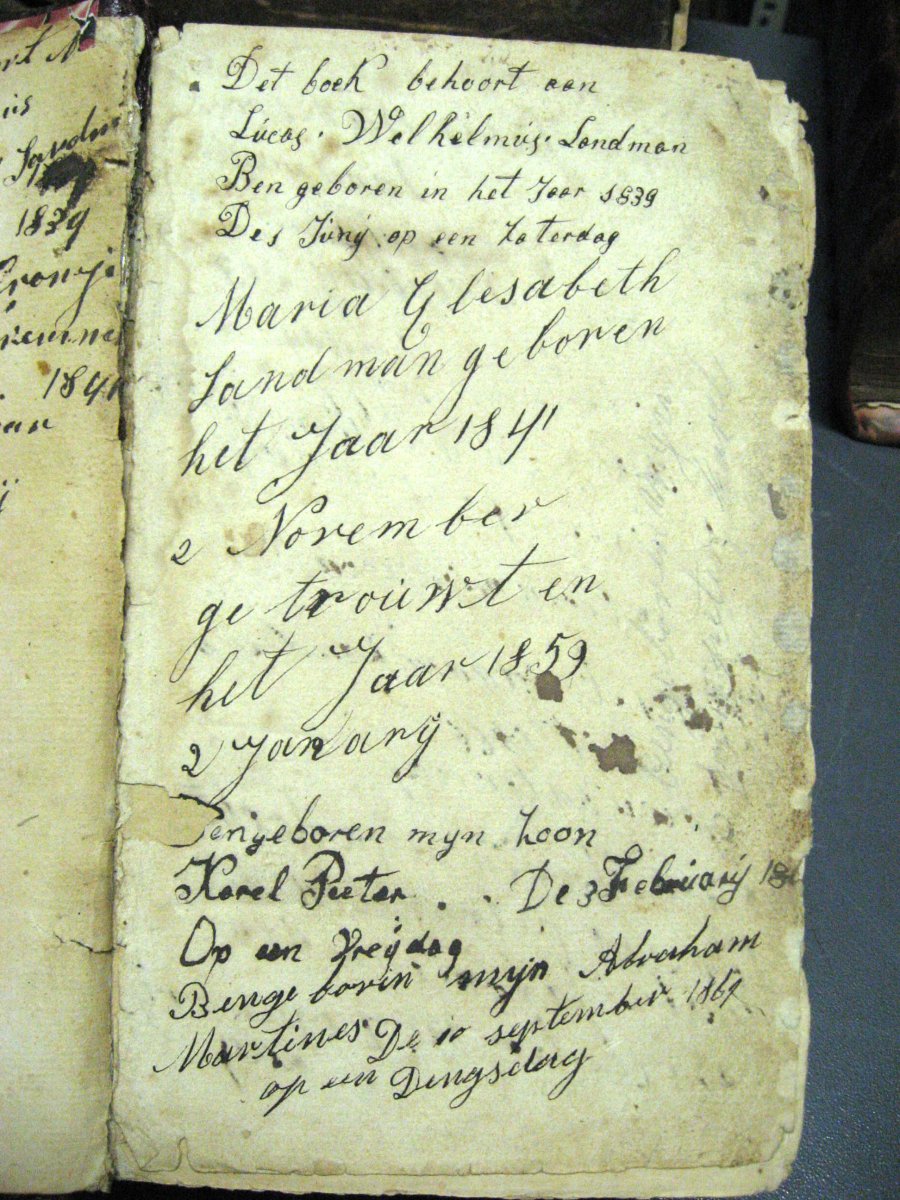 1839
184
Det boek behoort aan
Lucas. Welhelmus. Landman
Ben geboren in het Jaar 1839
De 1 Junÿ op een Zaterdag
Maria Elesabeth
Landman geboren
het Jaar 1841
2 November
ge trouwt en
het Jaar 1859
2 Janarÿ
geboren myn Zoon
Karel Peeter . . De 3 Februarÿ 18
Op een Vreÿdag
Bengeboren mÿn Abraham
Martines De 10 september
op een Dengsdag